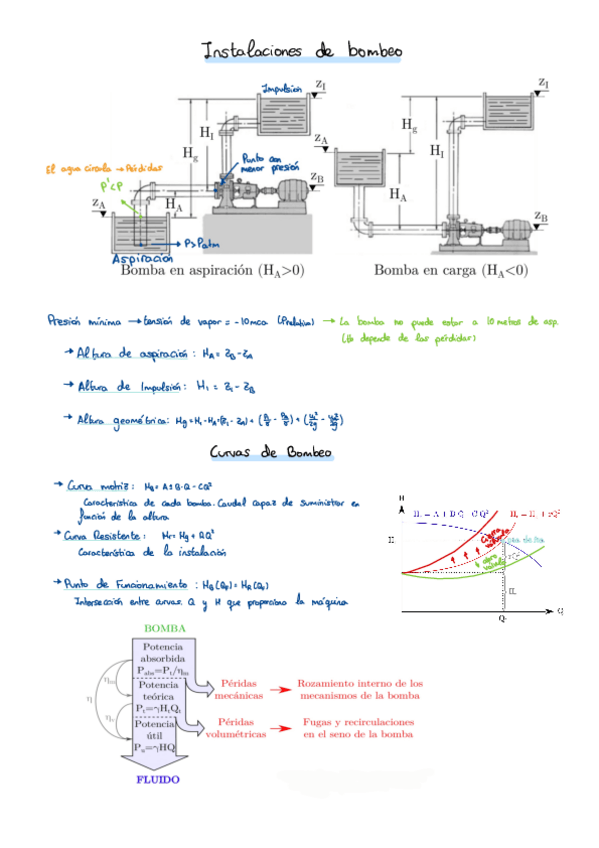 Instalaciones de bombeo
Impulsión
z_I
H_I
H_g
Punto con
menor presión
El agua circula → Pérdidas
P'<P
z_A
H_A
z_B
P>Patm
Aspiración
Bomba en aspiración (H_A>0)
z_I
H_g
H_I
z_A
H_A
z_B
Bomba en carga (H_A<0)
Presión mínima → tensión de vapor = -10mca (Prelativa) → La bomba no puede estar a 10 metros de asp.
→ Altura de aspiración: H_A = z_B - z_A
→ Altura de Impulsión: H_I = z_I - z_B
→ Altura geométrica: Hg = H_I - H_A =
Curvas de Bombeo
→ Curva motriz: H_B = A ± B·Q - CQ²
Característica de cada bomba. Caudal capaz de suministrar en
función de la altura
→ Curva Resistente: Hr = Hg + RQ²
Característica de la instalación
→ Punto de Funcionamiento: H_B(Q_F) = H_R(Q_F)
Intersección entre curvas. Q y H que proporciona la máquina
H
Q
BOMBA
Potencia
absorbida
P_abs=P_t/η_m
Potencia
teórica
P_t=γH_tQ_t
Potencia
útil
P_u=γHQ
η_m
η_v
η
FLUIDO
Péridas
mecánicas
Rozamiento interno de los
mecanismos de la bomba
Péridas
volumétricas
Fugas y recirculaciones
en el seno de la bomba